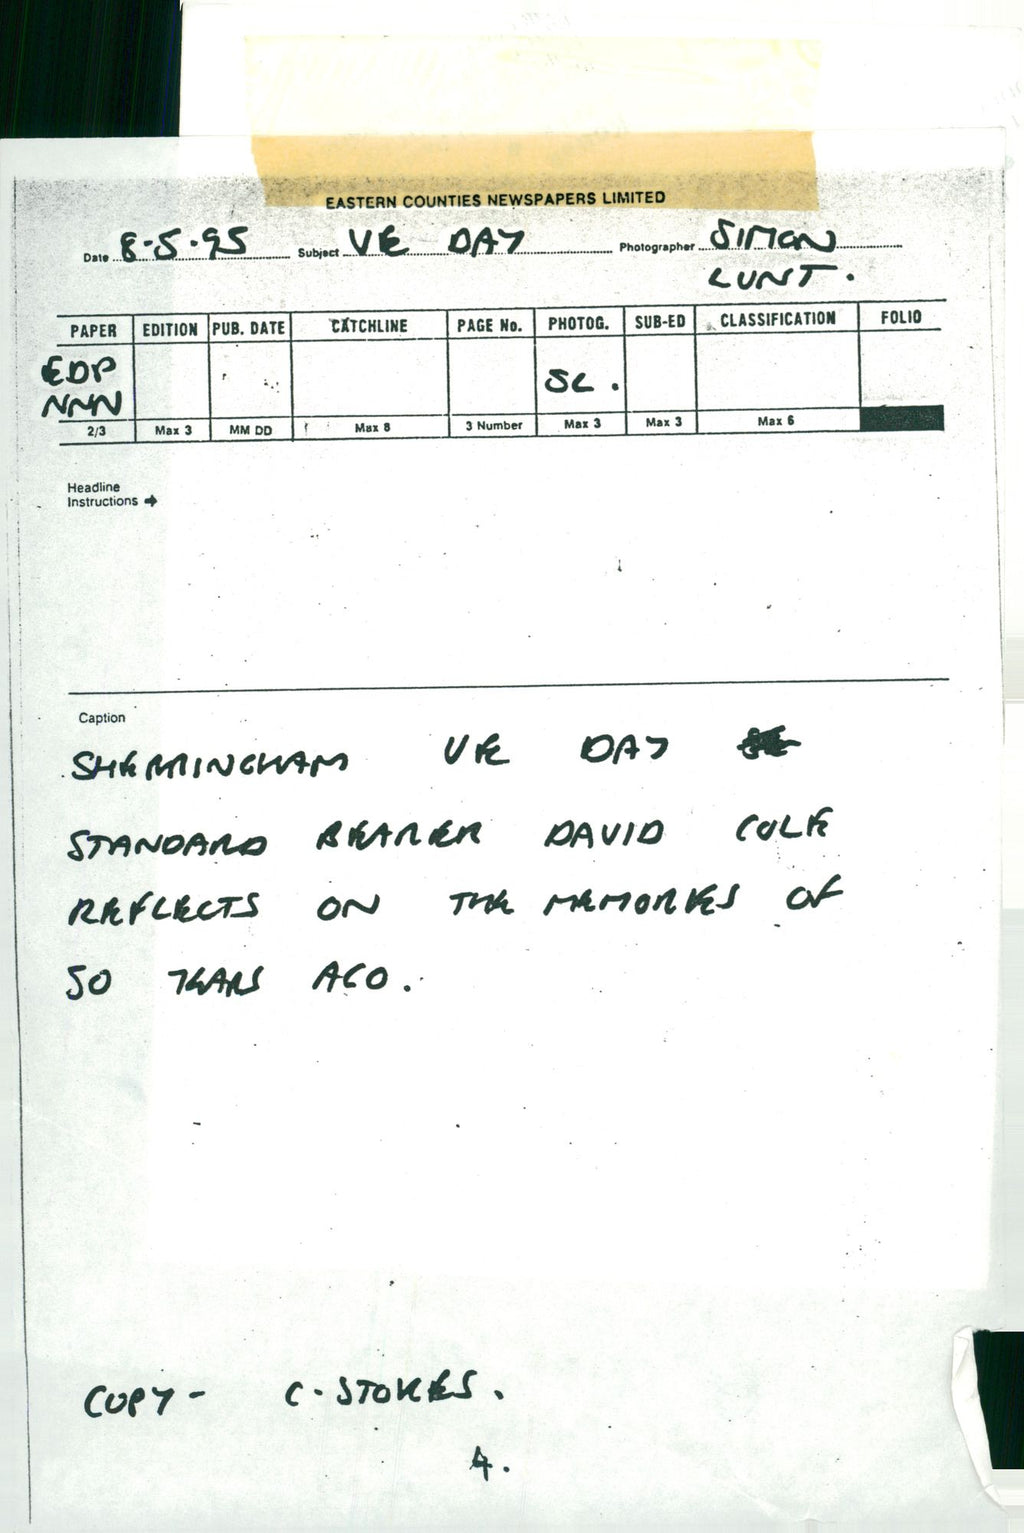 EASTERN COUNTIES NEWSPAPERS LIMITED
Date 8-5-95 Subject VE DAY Photographer SIMON
LUNT.
PAPER EDITION PUB. DATE CATCHLINE PAGE No. PHOTOG. SUB-ED CLASSIFICATION FOLIO
EDP
NNN SL.
2/3 Max 3 MM DD Max 8 3 Number Max 3 Max 3 Max 6
Headline
Instructions →
Caption
SHERRINGHAM VE DAY
STANDARD BEARER DAVID COLE
REFLECTS ON THE MEMORIES OF
50 YEARS AGO.
COPY- C-STOKES.
4.